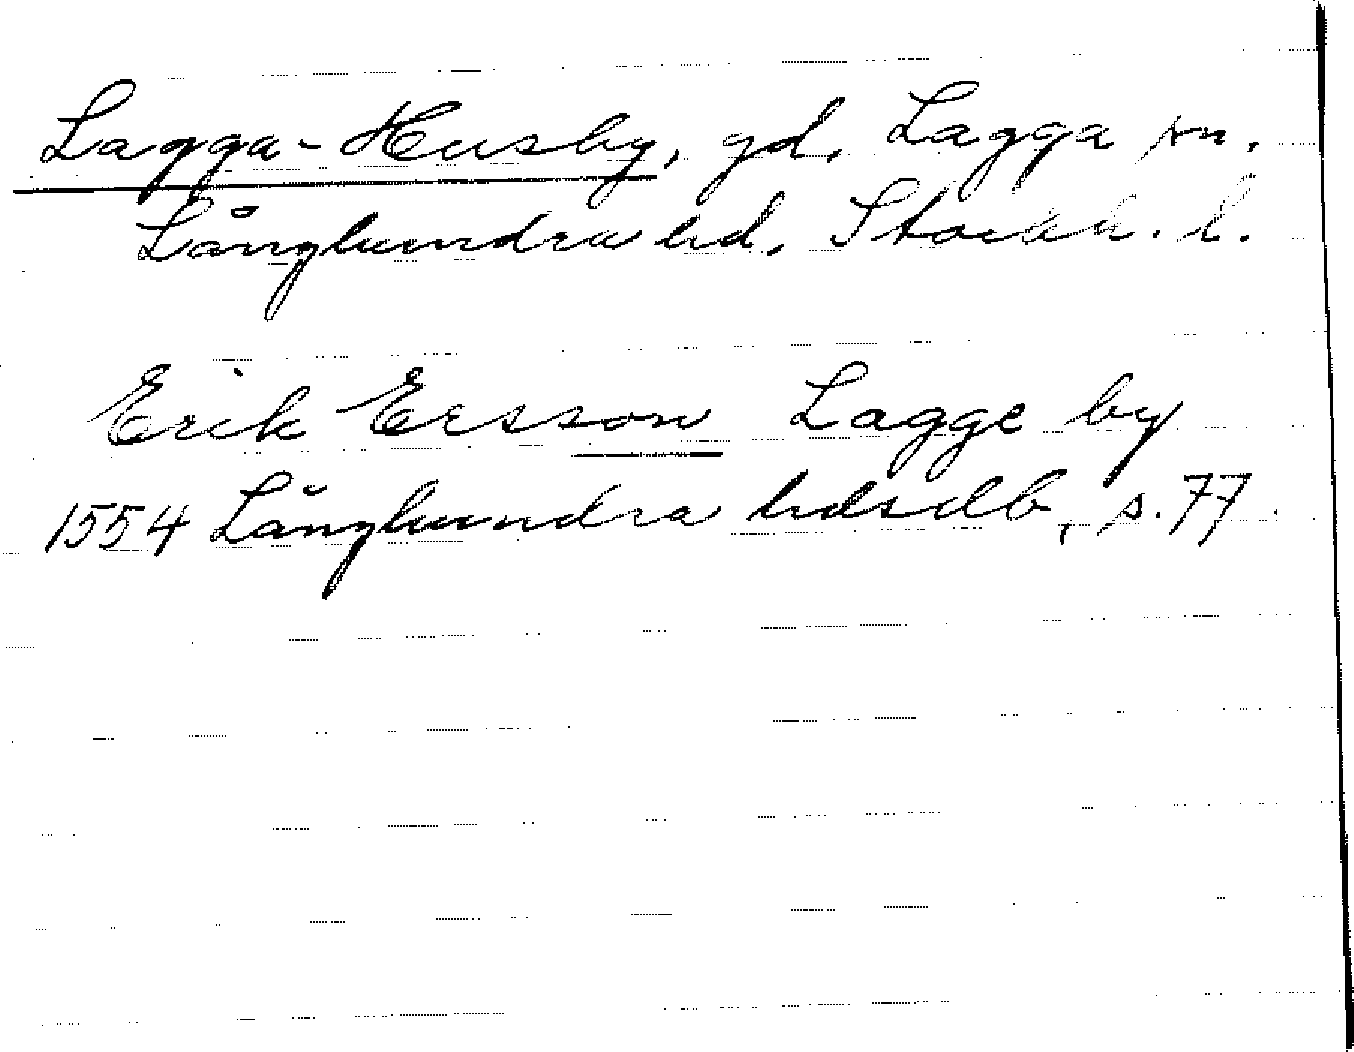 Lagga-Husby, gd, Lagga sn.
Långhundra hd, Stockh. l.
Erik Ersson Lagge by
1554 Långhundra hdsdb, s. 77